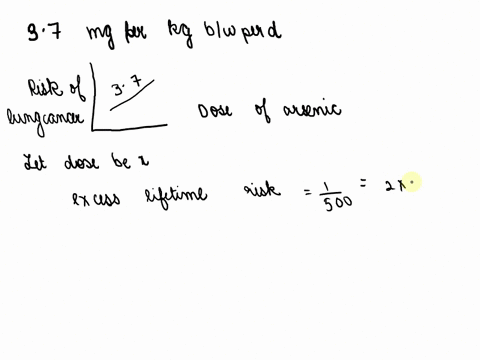 3.7 mg per kg b/w per d
Risk of
lung cancer
3.7
Dose of arsenic
Let dose be x
excess lifetime risk = 1/500 = 2x.